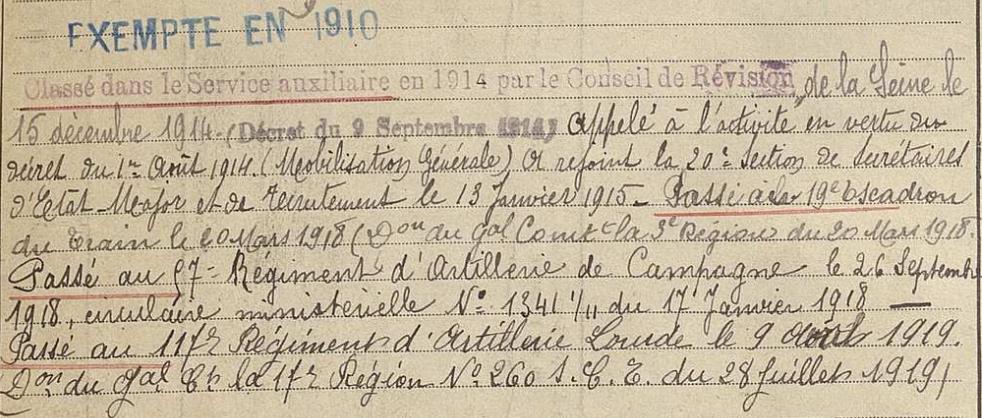 EXEMPTÉ EN 1910
Classé dans le Service auxiliaire en 1914 par le Conseil de Révision de la Seine le
15 décembre 1914. (Décret du 9 Septembre 1914) Appelé à l'activité en vertu du
décret du 1er Août 1914. (Mobilisation Générale) A rejoint la 20e Section de Secrétaires
d'Etat-Major et de recrutement le 13 Janvier 1915. Passé à la 19e Escadron
du Train le 20 Mars 1918 (Don du Gal Comt la 3e Région du 20 Mars 1918.
Passé au 57e Régiment d'Artillerie de Campagne le 26 Septembre
1918, circulaire ministérielle No 1341 1/11 du 17 Janvier 1918 —
Passé au 117e Régiment d'Artillerie Lourde le 9 Août 1919.
(Don du Gal Ct la 17e Région No 260 S.C.E. du 28 Juillet 1919)